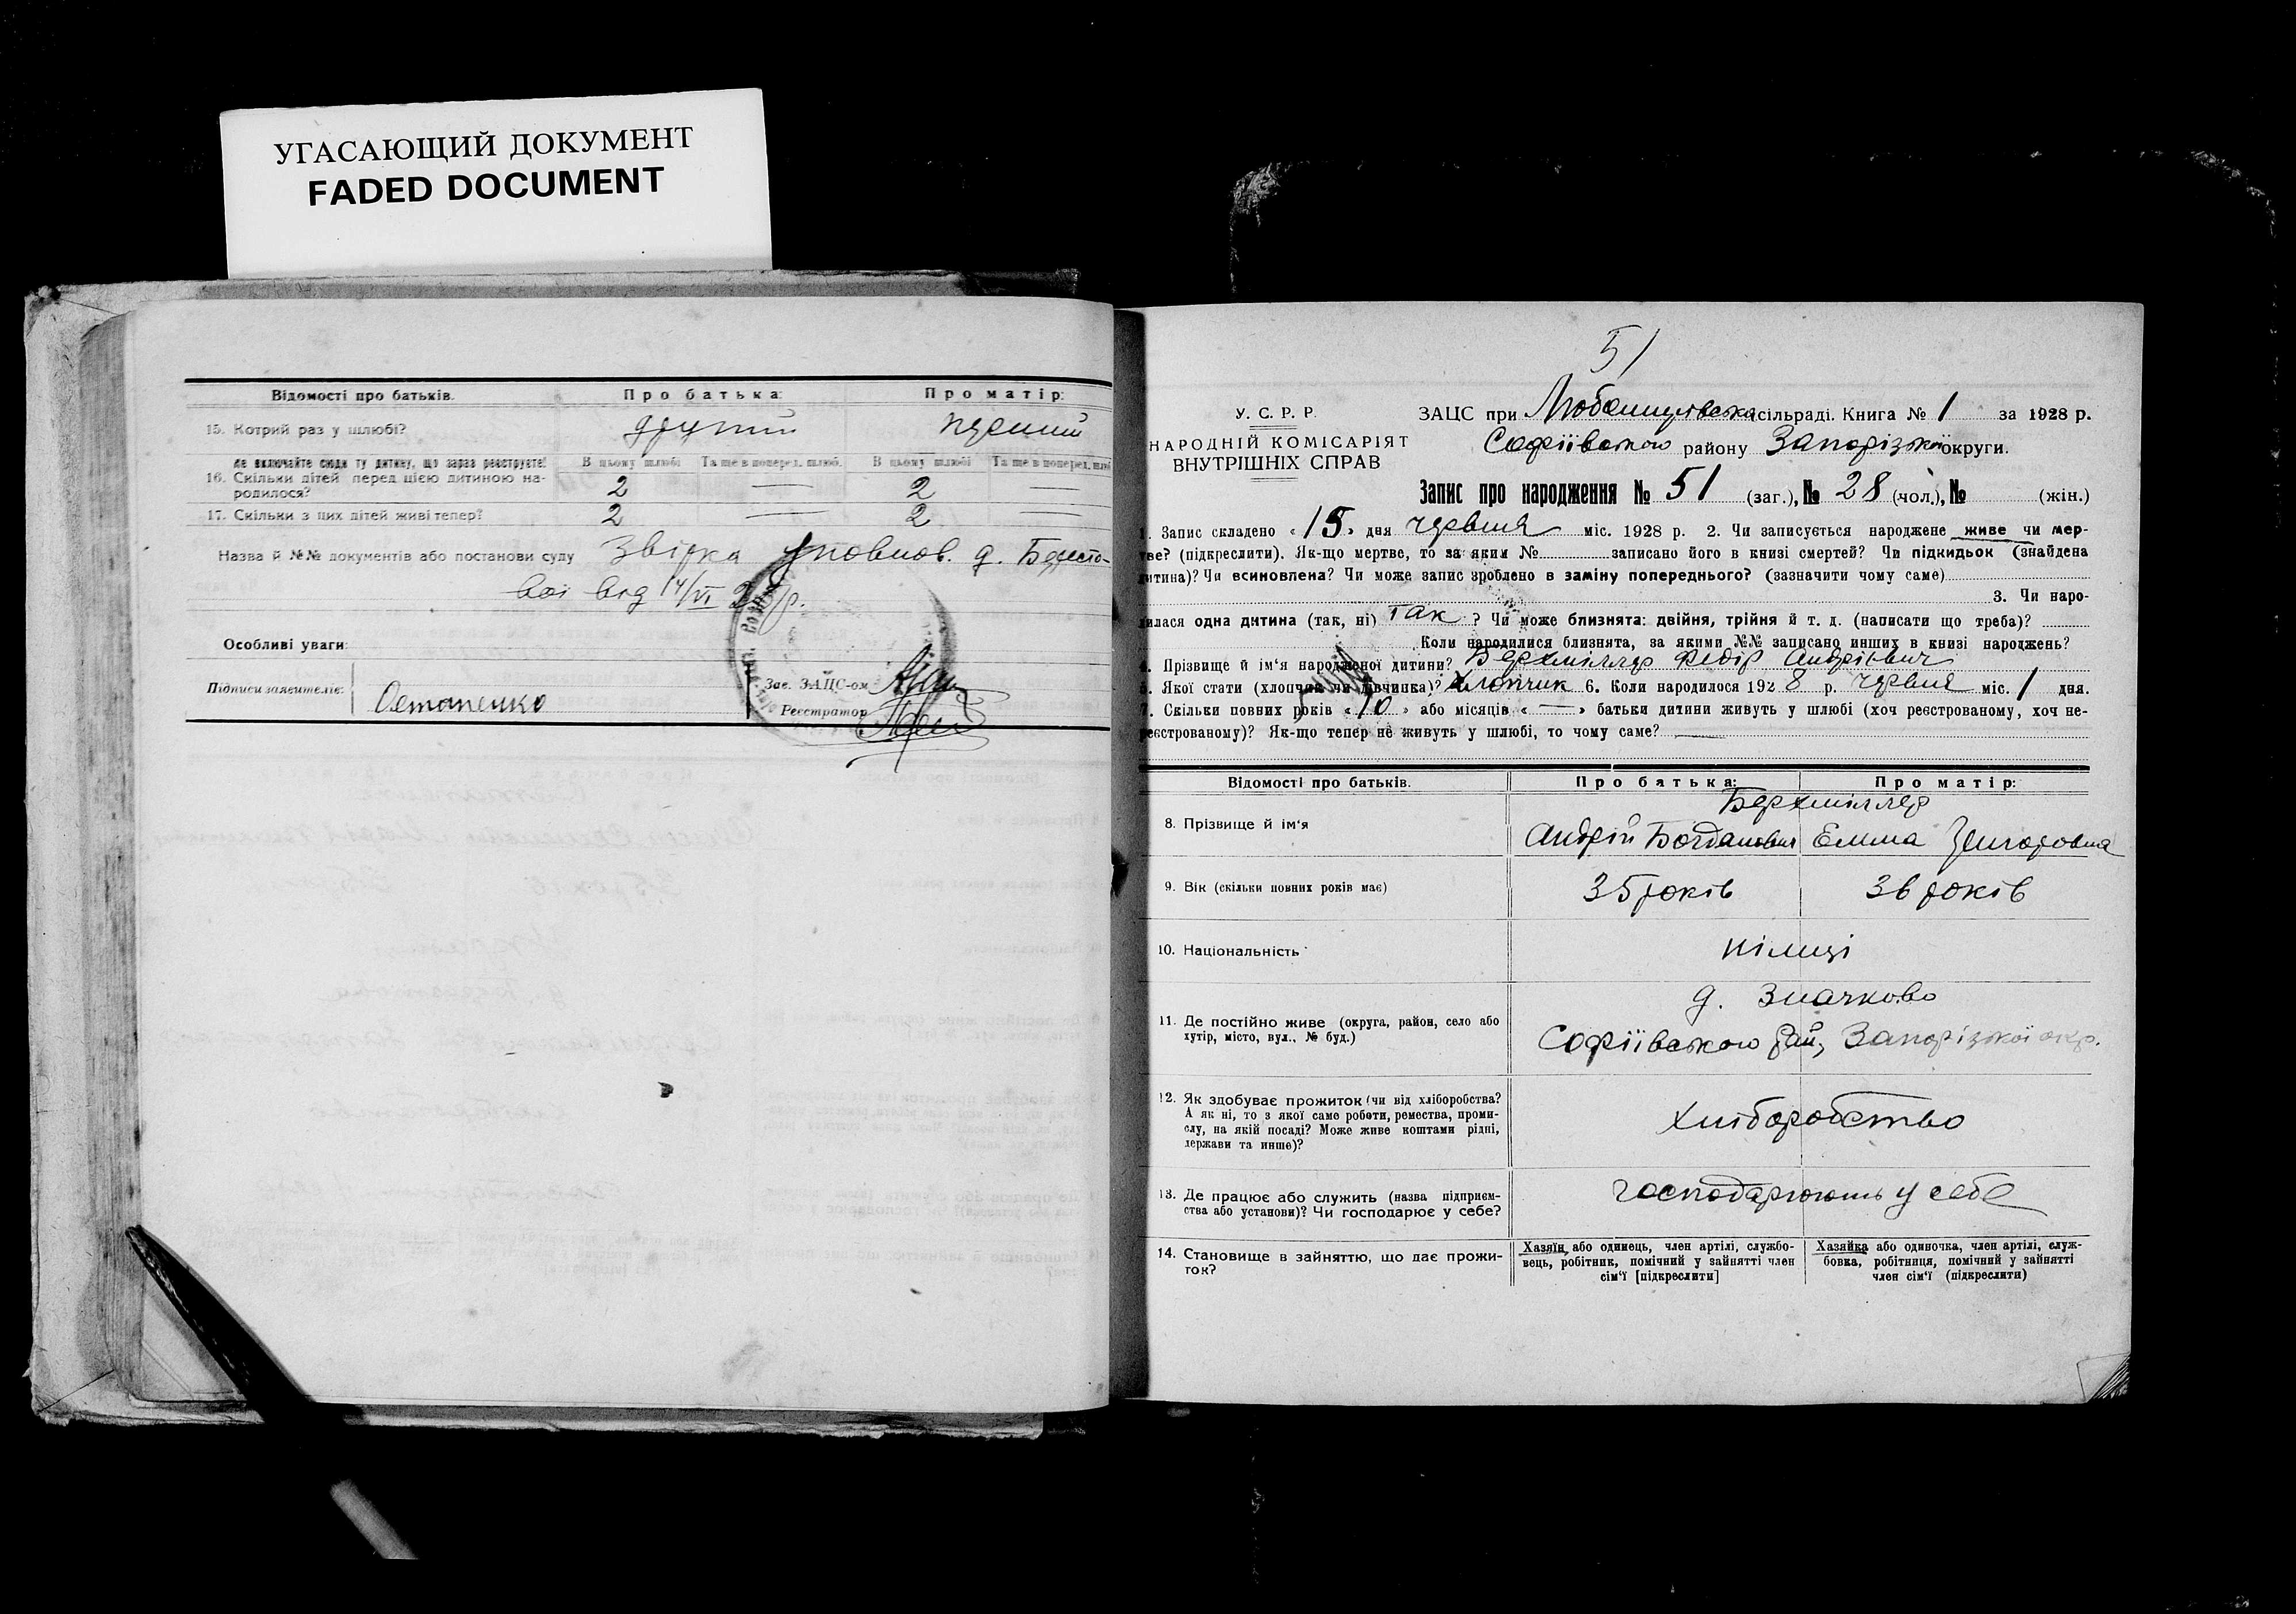 УГАСАЮЩИЙ ДОКУМЕНТ
FADED DOCUMENT
Відомості про батьків. Про батька: Про матір:
15. Котрий раз у шлюбі? другий перший
Не включайте сюди ту дитину, що зараз реєструєте! В цьому шлюбі Та ще в поперед. шлюб. В цьому шлюбі Та ще в поперед. шлюб
16. Скільки дітей перед цією дитиною на-
родилося? 2 — 2 —
17. Скільки з цих дітей живі тепер? 2 — 2 —
Назва й №№ документів або постанови суду Звірка уповнов. д. Бересто-
вої від 14/VI 28 р.
Особливі уваги:
Підписи заявителів: Остапенко
Зав. ЗАЦС-ом
Реєстратор
51
У. С. Р. Р.
НАРОДНІЙ КОМІСАРІЯТ
ВНУТРІШНІХ СПРАВ
ЗАЦС при сільраді. Книга № 1 за 1928 р.
Софіївського району Запорізької округи.
Запис про народження № 51 (заг.), № 28 (чол.), № (жін.)
1. Запис складено «15» дня червня міс. 1928 р. 2. Чи записується народжене живе чи мер-
тве? (підкреслити). Як-що мертве, то за яким № записано його в книзі смертей? Чи підкидьок (знайдена
дитина)? Чи всиновлена? Чи може запис зроблено в заміну попереднього? (зазначити чому саме)
3. Чи наро-
дилася одна дитина (так, ні) так ? Чи може близнята: двійня, трійня й т. д. (написати що треба)?
Коли народилися близнята, за якими №№ записано инших в книзі народжень?
4. Прізвище й ім'я народженої дитини? Берхмиллер Федір Андрієвич
5. Якої стати (хлопчик чи дівчинка)? Хлопчик 6. Коли народилося 1928 р. червня міс. 1 дня.
7. Скільки повних років «10» або місяців «—» батьки дитини живуть у шлюбі (хоч реєстрованому, хоч не-
реєстрованому)? Як-що тепер не живуть у шлюбі, то чому саме? —
Відомості про батьків. Про батька: Про матір:
Берхміллер
8. Прізвище й ім'я Андрій Богданович Емма Григоровна
9. Вік (скільки повних років має) 35 років 36 років
10. Національність німці
д. Значково
11. Де постійно живе (округа, район, село або
хутір, місто, вул., № буд.) Софіївського рай, Запорізької окр.
12. Як здобуває прожиток (чи від хліборобства?
А як ні, то з якої саме роботи, ремества, проми-
слу, на якій посаді? Може живе коштами рідні,
держави та инше)? хліборобство
13. Де працює або служить (назва підприєм-
ства або установи)? Чи господарює у себе? господарюють у себе
14. Становище в зайняттю, що дає прожи-
ток?
Хазяїн або одинець, член артілі, службо-
вець, робітник, помічний у зайнятті член
сім'ї [підкреслити]
Хазяйка або одиночка, член артілі, служ-
бовка, робітниця, помічний у зайнятті
член сім'ї (підкреслити)